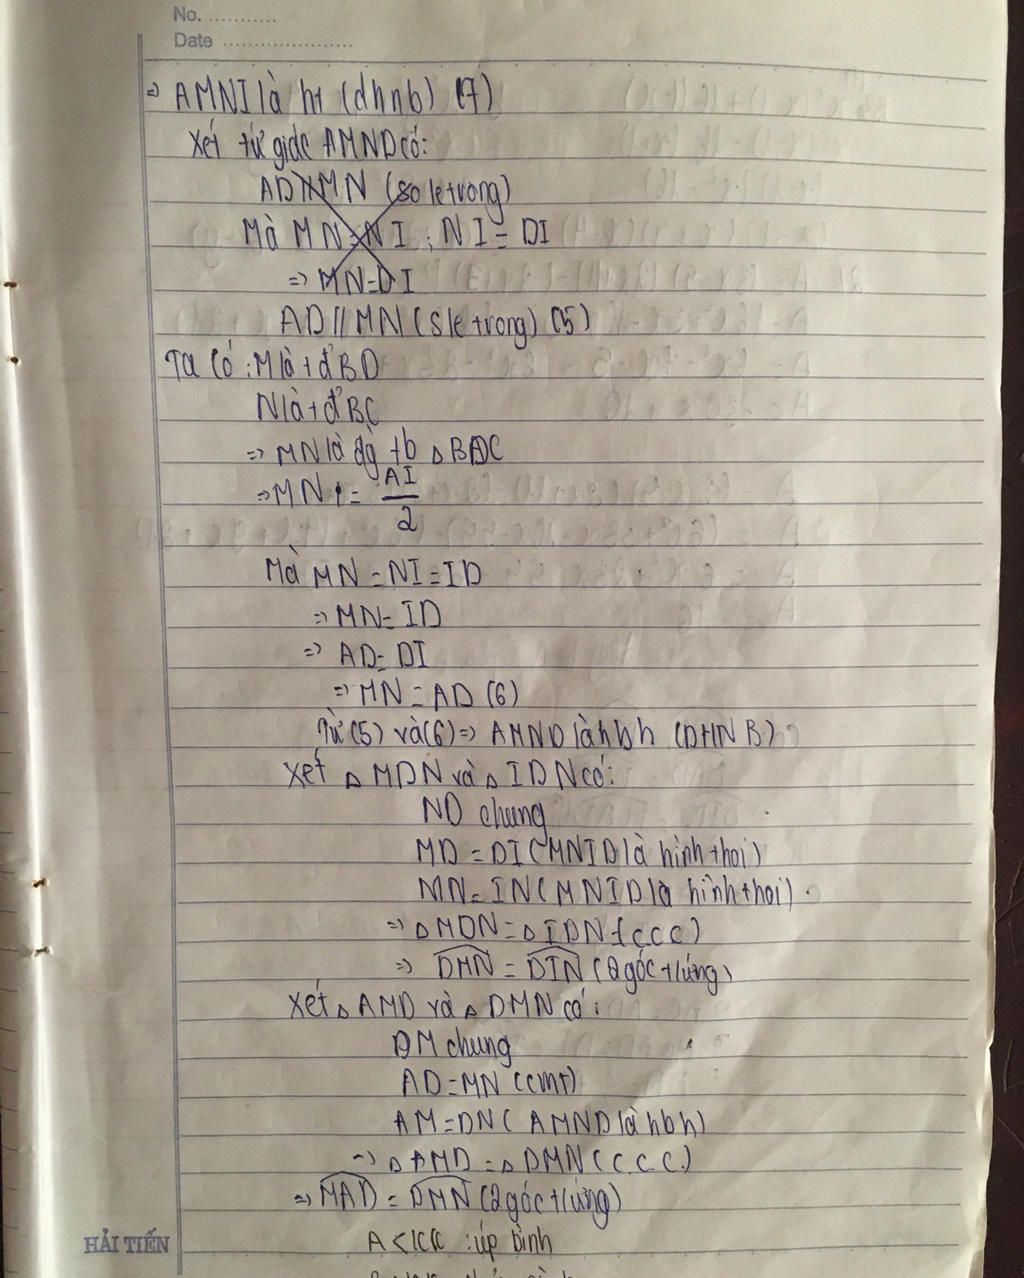 No. ...........
Date .....................
=> AMNI là ht (dhnb) (7)
Xét tứ giác AMND có:
AD//MN (so le trong)
Mà MN=NI ; NI = DI
=> MN=DI
AD//MN (sle trong) (5)
Ta có : M là tđ BD
N là tđ BC
=> MN là đg tb △ BDC
=> MN = AI
2
Mà MN = NI = ID
=> MN = ID
=> AD = DI
=> MN = AD (6)
Từ (5) và (6) => AMND là hbh (DHNB)
Xét △ MDN và △ IDN có:
ND chung
MD = DI (MNID là hình thoi)
MN = IN (MNID là hình thoi).
=> △ MDN = △ IDN (c c c)
=> DMN = DIN (2 góc t/ứng)
Xét △ AMD và △ DMN có :
DM chung
AD = MN (cmt)
AM = DN ( AMND là hbh)
=> △ AMD = △ DMN (c.c.c.)
=> MAD = DMN (2 góc t/ứng)
HẢI TIẾN